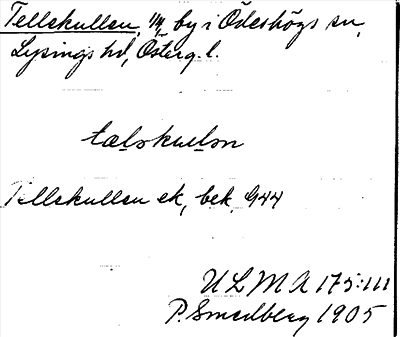 Tellskullen, 1/4, by i Ödeshögs sn,
Lysings hd, Österg. l.
tælskulsn
Tellskullen ek, bek. G44
U L M A 175:111
P. Smedberg 1905